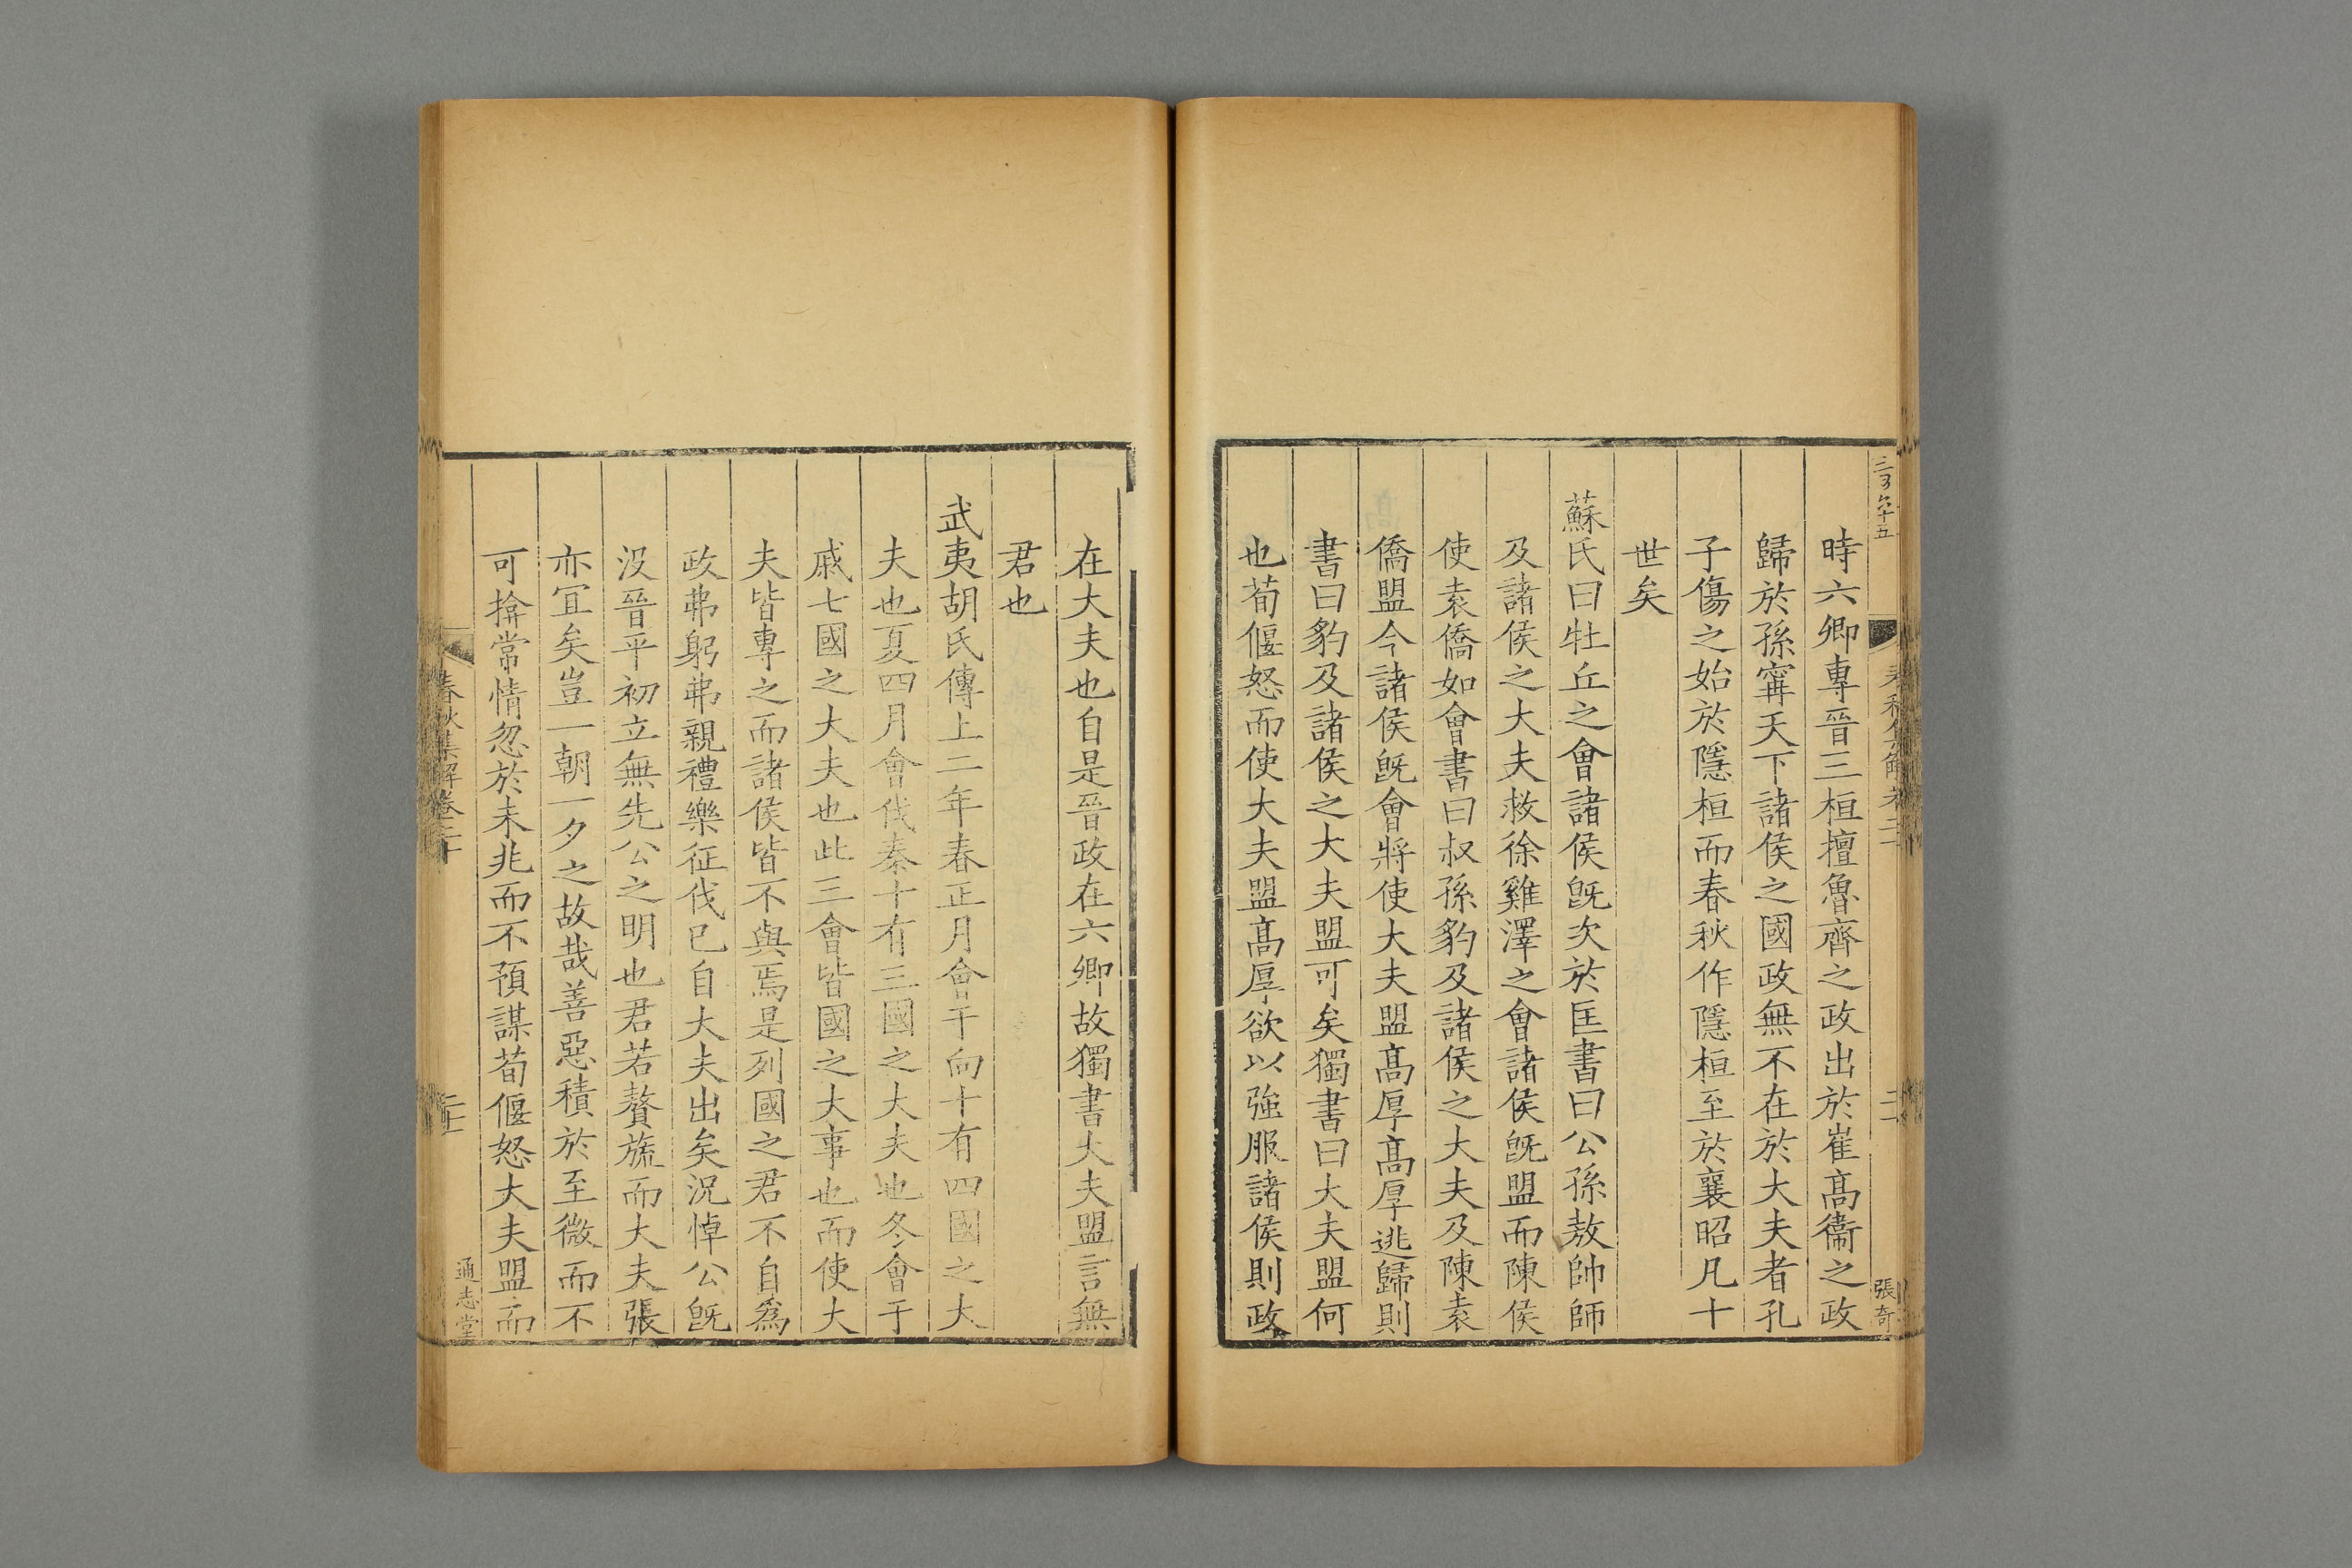 三百六十五
春秋集解卷二十
二十
張奇
時六卿專晉三桓擅魯齊之政出於崔髙衞之政
歸於孫甯天下諸侯之國政無不在於大夫者孔
子傷之始於隱桓而春秋作隱桓至於襄昭凡十
世矣
蘇氏曰牡丘之會諸侯旣次於匡書曰公孫敖帥師
及諸侯之大夫救徐雞澤之會諸侯旣盟而陳侯
使袁僑如會書曰叔孫豹及諸侯之大夫及陳袁
僑盟今諸侯旣會將使大夫盟髙厚髙厚逃歸則
書曰豹及諸侯之大夫盟可矣獨書曰大夫盟何
也荀偃怒而使大夫盟髙厚欲以強服諸侯則政
在大夫也自是晉政在六卿故獨書大夫盟言無
君也
武夷胡氏傳上二年春正月會于向十有四國之大
夫也夏四月會伐秦十有三國之大夫也冬會于
戚七國之大夫也此三會皆國之大事也而使大
夫皆專之而諸侯皆不與焉是列國之君不自爲
政弗躬弗親禮樂征伐已自大夫出矣況悼公旣
没晉平初立無先公之明也君若贅旒而大夫張
亦冝矣豈一朝一夕之故哉善惡積於至微而不
可揜常情忽於未兆而不預謀荀偃怒大夫盟而
春秋集解卷二十
通志堂